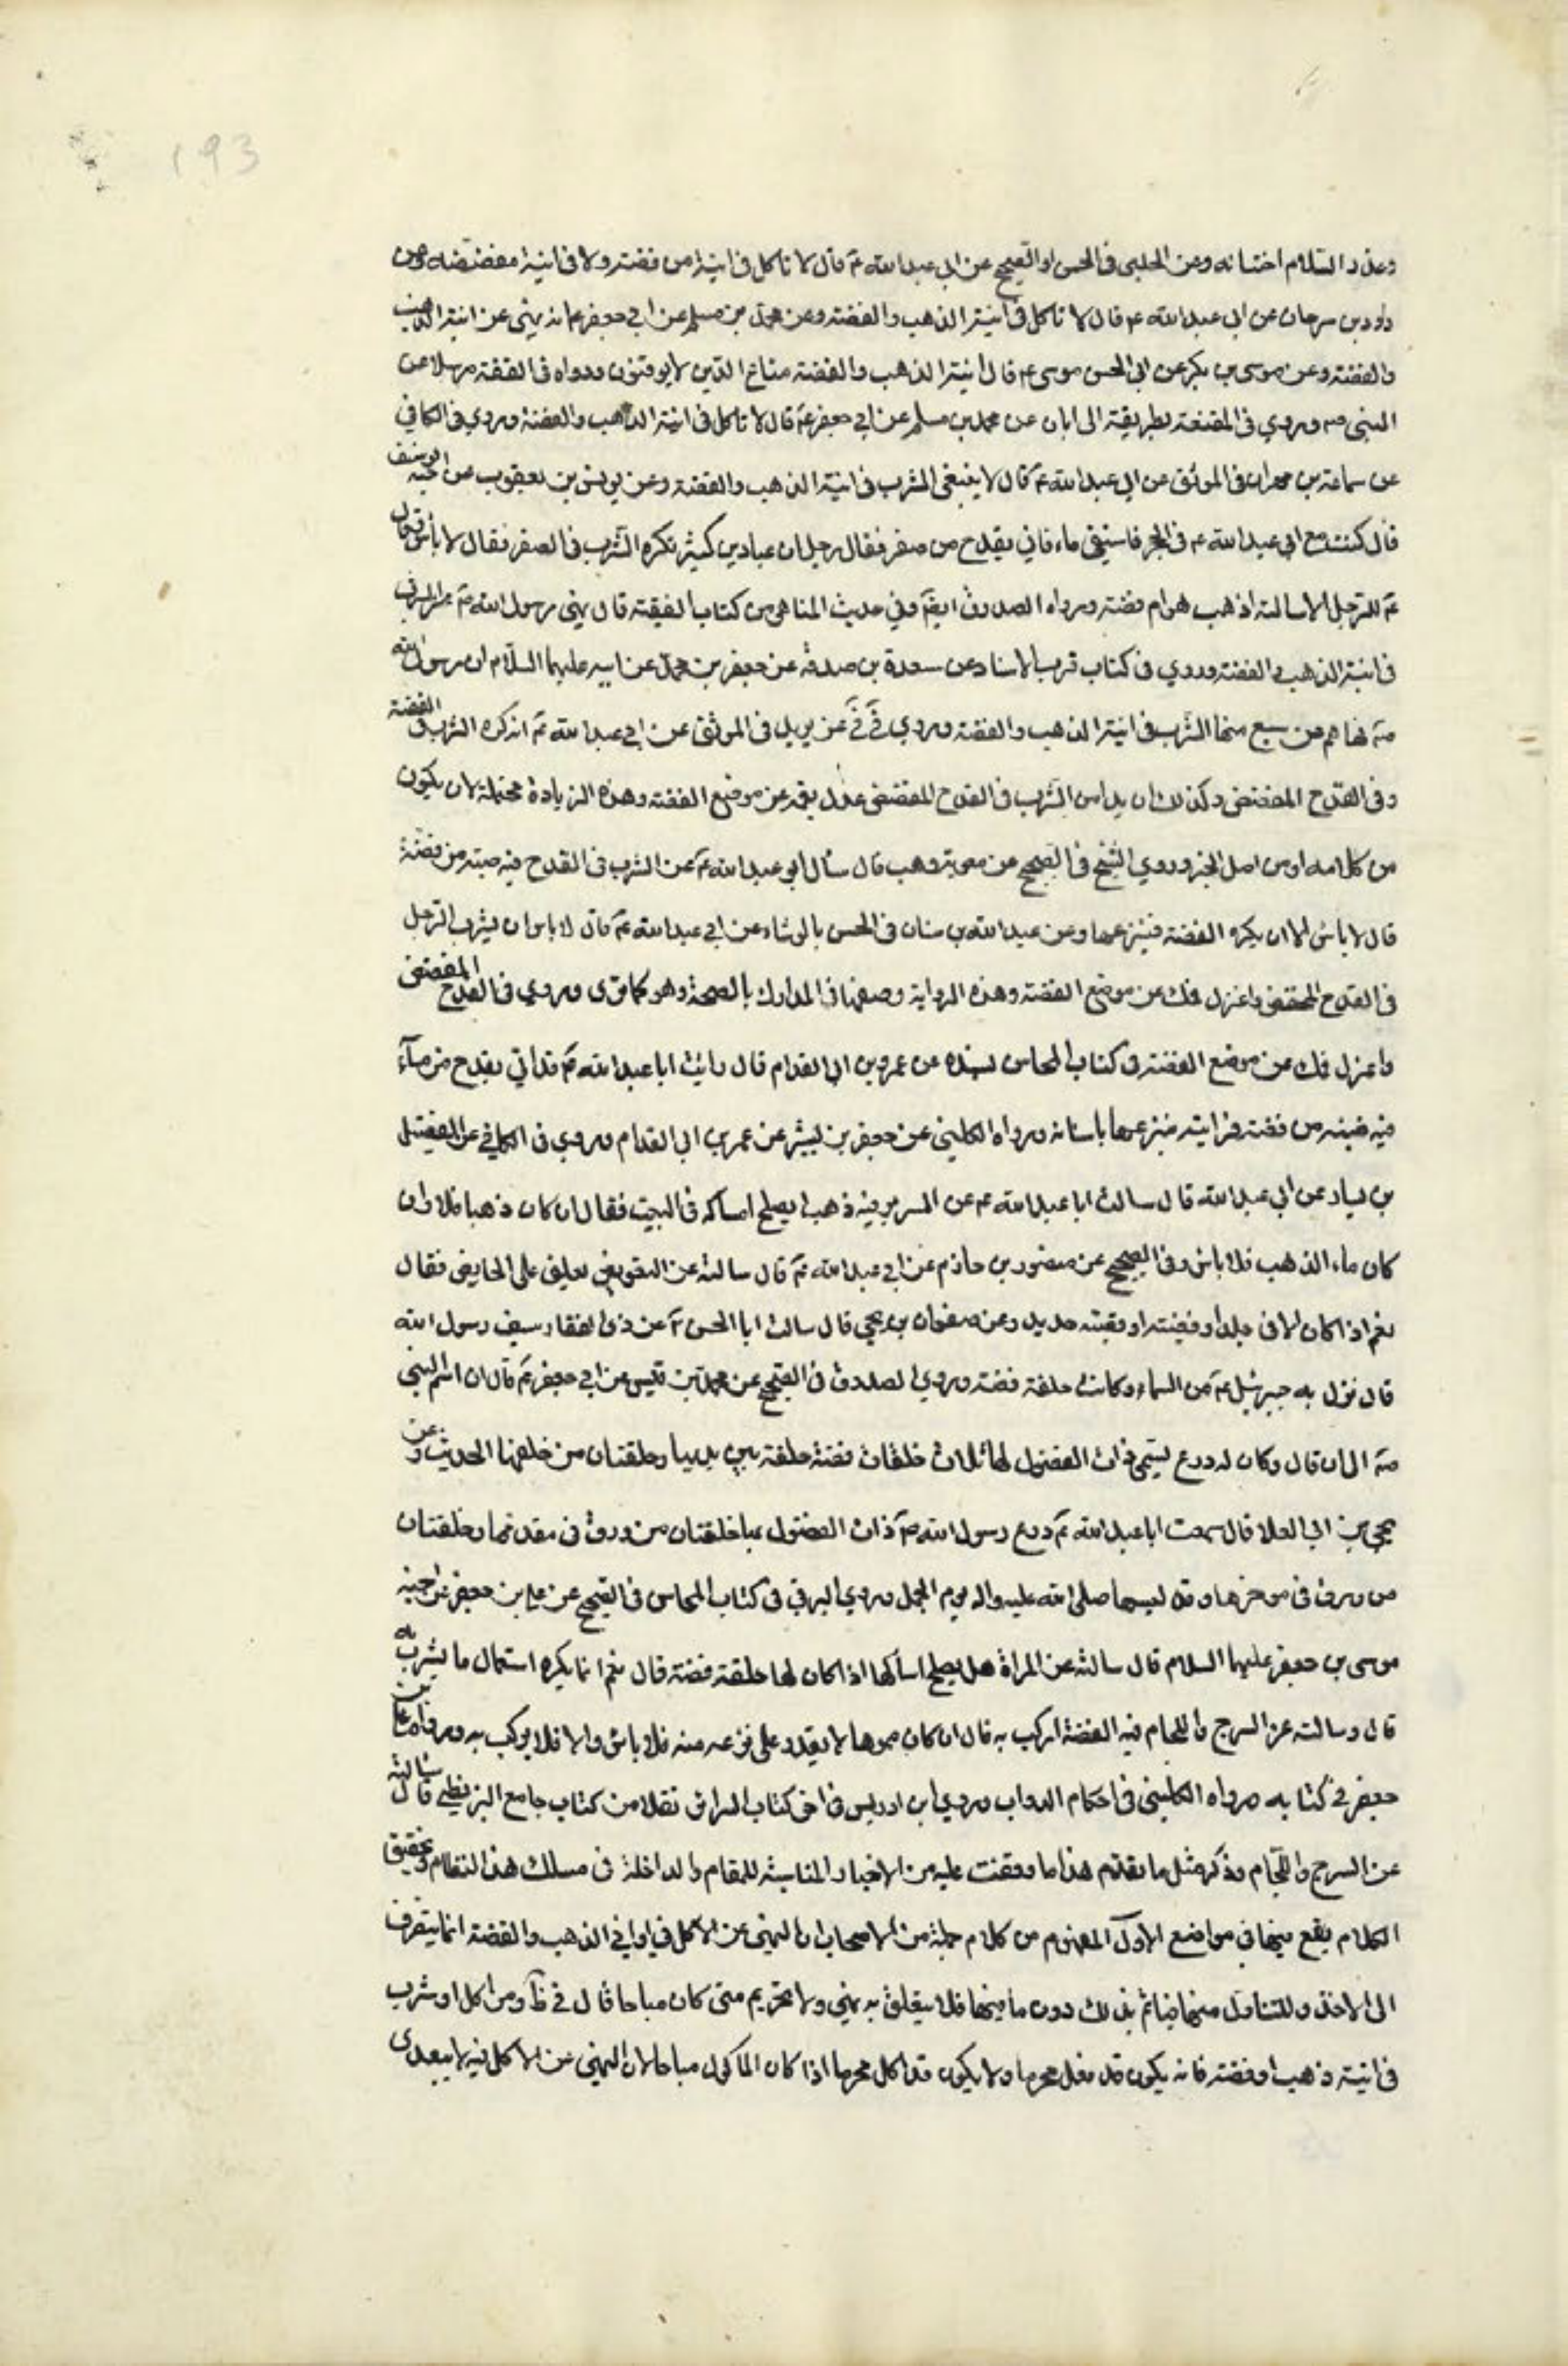 193
وعذر السلام اختانه وعن الحلبي في الحسن او الصحيح عن ابي عبد الله عم قال لا تاكل في انية من فضة ولا في انية مفضضة وعن
داود بن سرحان عن ابي عبد الله عم قال لا تاكل في انية الذهب والفضة وعن محمد بن مسلم عن ابي جعفر عم انه نهى عن انية الذهب
والفضة وعن موسى بن بكر عن ابي الحسن موسى عم قال انية الذهب والفضة متاع الذين لا يوقنون ورواه في الفقيه مرسلا عن
النبي صم وروي في المقنعة بطريقة الى ابان عن محمد بن مسلم عن ابي جعفر عم قال لا تاكل في انية الذهب والفضة وروي في الكافي
عن سماعة بن مهران في الموثق عن ابي عبد الله عم قال لا ينبغي الشرب في انية الذهب والفضة وعن يونس بن يعقوب عن اخيه يوسف
قال كنت مع ابي عبد الله عم في الحجر فاستسقى ماء فاتي بقدح من صفر فقال رجل ان عباد بن كثير يكره الشرب في الصفر فقال لا بأس وقال
عم للرجل الا سالته اذهب هو ام فضة ورواه الصدوق ايضا وفي حديث المناهي من كتاب الفقيه قال نهى رسول الله صم عن الشرب
في انية الذهب والفضة وروي في كتاب قرب الاسناد عن مسعدة بن صدقة عن جعفر بن محمد عن ابيه عليهما السلام ان رسول الله
صم نهاهم عن سبع منها الشرب في انية الذهب والفضة وروي في في عن بريد في الموثق عن ابي عبد الله عم انه كره الشرب في الفضة
وفي القدح المفضض وكذلك ان يدهن الشرب في القدح المفضض عدل بفمه عن موضع الفضة وهذه الزيادة محتملة لان يكون
من كلامه او من اصل الخبر وروي الشيخ في الصحيح عن معوية بن وهب قال سأل ابو عبد الله عم عن الشرب في القدح فيه ضبة من فضة
قال لا باس الا ان يكره الفضة فينزعها وعن عبد الله بن سنان في الحسن بالوشاء عن ابي عبد الله عم قال لا باس ان يشرب الرجل
في القدح المفضض واعزل فمك عن موضع الفضة وهذه الرواية وصفها في المدارك بالصحة وهو كما ترى وروي في القدح المفضض
واعزل فمك عن موضع الفضة وفي كتاب المحاسن بسنده عن عمرو بن ابي المقدام قال رايت ابا عبد الله عم قد اتي بقدح من ماء
فيه ضبة من فضة فرايته ينزعها باسنانه ورواه الكليني عن جعفر بن بشير عن عمرو بن ابي المقدام وروي في الكافي عن الفضيل
بن يسار عن ابي عبد الله قال سالت ابا عبد الله عم عن السرير فيه ذهب ايصلح امساكه في البيت فقال ان كان ذهبا فلا وان
كان ماء الذهب فلا باس وفي الصحيح عن منصور بن حازم عن ابي عبد الله عم قال سالته عن التعويذ يعلق على الحايض فقال
نعم اذا كان في جلد او فضة او قصبة حديد وعن صفوان بن يحيى قال سالت ابا الحسن عم عن ذي الفقار سيف رسول الله
قال نزل به جبرئيل عم من السماء وكانت حلقته فضة وروي الصدوق في الصحيح عن محمد بن قيس عن ابي جعفر عم قال ان اسم النبي
صم الى ان قال وكان له درع تسمى ذات الفضول لها ثلاث حلقات فضة حلقة بين يديها وحلقتان من خلفها الحديث وعن
يحيى بن ابي العلا قال سمعت ابا عبد الله عم درع رسول الله صم ذات الفضول لها حلقتان من ورق في مقدمها وحلقتان
من ورق في موخرها وقد لبسها صلى الله عليه واله يوم الجمل وروي البرقي في كتاب المحاسن في الصحيح عن علي بن جعفر عن اخيه
موسى بن جعفر عليهما السلام قال سالته عن المراة هل يصلح امساكها اذا كان لها حلقة فضة قال نعم انما يكره استعمال ما يشرب به
قال وسالته عن السرج واللجام فيه الفضة ايركب به قال ان كان مموها لا يقدر على نزعه منه فلا باس والا فلا يركب به ورواه علي بن
جعفر في كتابه ورواه الكليني في احكام الدواب وروي ابن ادريس في اخر كتاب السرائر نقلا من كتاب جامع البزنطي قال سالته
عن السرج واللجام وذكر مثل ما تقدم هذا ما وقفت عليه من الاخبار المناسبة للمقام والداخلة في مسلك هذا النظام وتحقيق
الكلام يقع فيها في مواضع الاول المفهوم من كلام جملة من الاصحاب ان النهي عن الاكل في اواني الذهب والفضة انما ينصرف
الى الاخذ والتناول منها فياثم بذلك دون ما فيها فلا يتعلق به نهي ولا تحريم متى كان مباحا قال في ومن اكل او شرب
في انية ذهب او فضة فانه يكون قد فعل محرما ولا يكون قد اكل محرما اذا كان الماكول مباحا لان النهي عن الاكل فيه لا يتعدى